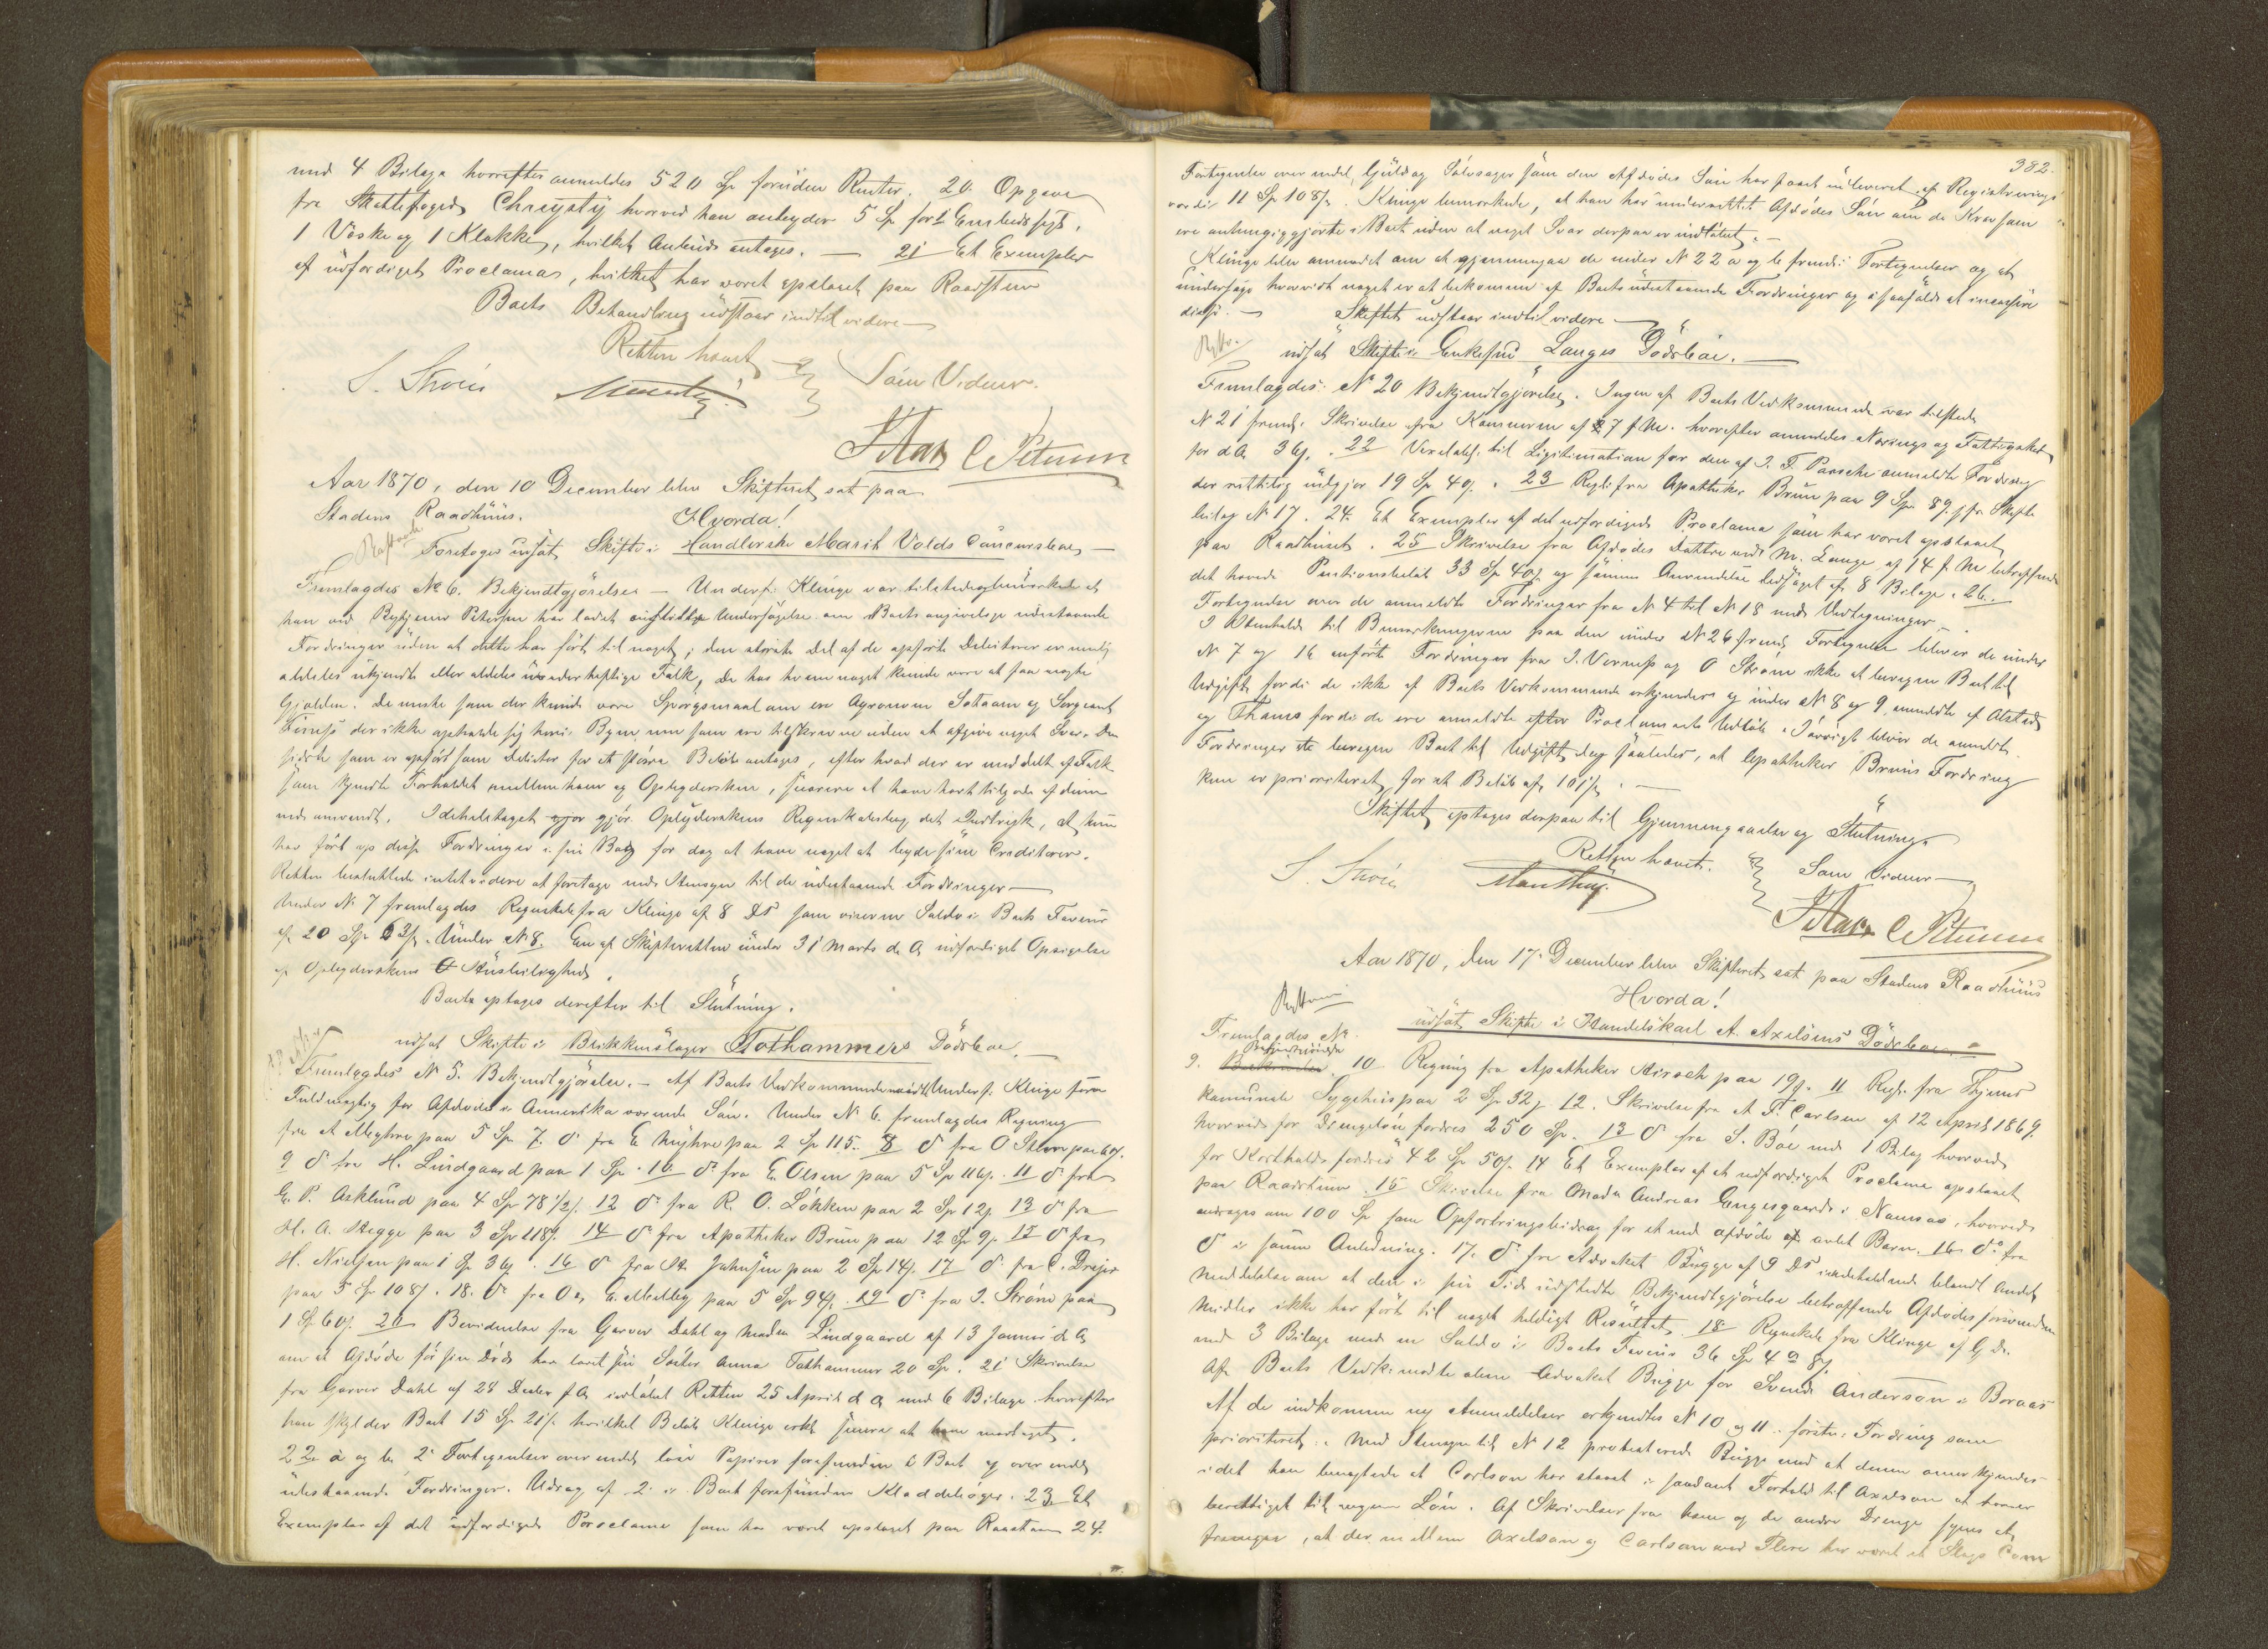 med 4 Bilage hvorefter anmeldes 520 Sp foruden Renter. 20. Opgave
fra Skattefoged Chrysty hvorved han anbyder 5 Sp for 1
1 Væske og 1 Klokke, hvilket Anbud antages. — 21 Et Exemplar
af udfærdiget Proclama, hvilket har været opslaaet paa Raadstuen
Boets Behandling udstaar indtil videre —
Retten hævet
Som Vidner.
S. Strøm
C Petersen
Aar 1870, den 10 December blev Skifteret sat paa
Stadens Raadhuus.
Hvorda!
Foretoges udsat Skifte i Handlerske Marit Volds Concursboe, —
Fremlagdes No 6. Bekjendtgjørelse — Underf: Klinge var tilstede og bemærkede at
han ved Petersen har ladet anstille Undersøgelse om Boets angivelige udestaaende
Fordringer uden at dette har ført til noget; den største Del af de opførte Debitorer er
aldeles ukjendte eller aldeles uvederheftige Folk, de hos hvem noget kunde være at faa nægte
Gjælden. De eneste som der kunde være Spørgsmaal om ere Agronom og Sergeant
der ikke opholde sig her i Byen, men som ere tilskrevne uden at afgive noget Svar. Den
sidste som er opført som Debitor for et større Beløb antages, efter hvad der er meddelt af Folk
som kjendte Forholdet mellem ham og Opbyderskin, snarere at have havt tilgode af denne
end omvendt. I det hele taget gjør Opbyderskens Regnskabsbog det Indtryk, at hun
har ført op disse Fordringer i sin Bog for dog at have noget at byde sine Creditorer.
Retten besluttede intet videre at foretage med Hensyn til de udestaaende Fordringer —
Under No 7 fremlagdes Regnskab fra Klinge af 8 Ds som viser en Saldo i Boets Faveur
af 20 Sp 63 s. Under No 8. En af Skifteretten under 31 Marts d. A. udfærdiget Opsigelse
af Opbyderskens Huusleilighed.
Boet optages derefter til Slutning.
udsat Skifte i Brikkenslager Tothammers Dødsboe. —
Fremlagdes No 5. Bekjendtgjørelse. — Af Boets Vedkommende mødte Underf. Klinge som
Fuldmægtig for Afdødes i Amerika værende Søn. Under No 6. fremlagdes Regning
fra A Meyhre paa 5 Sp 7. do fra E Myhre paa 2 Sp 115. 8 do fra O Steen paa 60 s.
9 do fra H. Lundgaard paa 1 Sp. 10 do fra E. Olsen paa 5 Sp 116 s. 11 do fra
E. P. Asklund paa 4 Sp 78 1/2 s. 12 do fra R. O. Løkken paa 2 Sp 12 s. 13 do fra
H. A. Hegge paa 3 Sp 118 s. 14 do fra Apotheker Bruun paa 12 Sp 9 s. 15 do fra
H. Nielsen paa 1 Sp 36 s. 16 do fra St. Johnsen paa 2 Sp 14 s. 17 do fra C. Drejer
paa 5 Sp 108 s. 18. do fra Oe, E. paa 5 Sp 94 s. 19 do fra J. Strøm paa
1 Sp 60 s. 20 Bevidnelse fra Garver Dahl og Madm Lindgaard af 13 Januar d. A.
om at Afdøde før sin Død har lovet sin Søster Anna Tothammer 20 Sp. 21 Skrivelse
fra Garver Dahl af 28 Decbr f. A. indløbet Retten 25 April d. A. med 6 Bilage hvorefter
han skylder Boet 15 Sp 21 s. hvilket Beløb Klinge erkl. senere at have modtaget.
22 a og b. 2 Fortegnelser over endel løse Papirer forefundne i Boet og over endel
udestaaende Fordringer. Udrag af 2 i Boet forefundne Kladdebøger. 23 Et
Exemplar af det udfærdigede Proclama som har været opslaaet paa Raadstuen 24.
382.
Fortegnelse over endel Guld og Sølvsager som den Afdødes Søn har faaet udleveret af Registrerings
værdi 11 Sp 108 s. Klinge bemærkede, at han har underrettet Afdødes Søn om de Krav som
ere anhængiggjorte i Boet uden at noget Svar derpaa er indløbet. —
Klinge blev anmodet om at gjennemgaa de under No 22 a og b fremd. Fortegnelser og at
undersøge hvorvidt noget er at bekomme af Boets udestaaende Fordringer og i saafald at incassere
disse. — Skiftet udstaar indtil videre —
udsat Skifte i Enkefru Langes Dødsboe. —
Fremlagdes: No 20 Bekjendtgjørelse. Ingen af Boets Vedkommende var tilstede
No 21 fremd. Skrivelse fra Kæmneren af 27 f. M. hvorefter anmeldes Nærings og Fattigskat
for d. A. 36 s. 22 Vexelobl. til Legitimation for den af J. F. Paasche anmeldte Fordring
der rettelig udgjør 19 Sp 40 s. 23 Regn. fra Apotheker Bruun paa 9 Sp 89 s. jfr. Skifte
bilag No 17. 24. Et Exemplar af det udfærdigede Proclama som har været opslaaet
paa Raadhuset. 25 Skrivelse fra Afdødes Datter M. Lange af 14 f. M. betræffende
det hævede Pensionsbeløb 33 Sp 40 s. og sammes Anvendelse ledsaget af 8 Bilage. 26.
Fortegnelse over de anmeldte Fordringer fra No 4 til No 18 med Vedtegninger —
I Henhold til Bemærkningerne paa den under No 26 fremd. Fortegnelse blev de under
No 7 og 16 anførte Fordringer fra J. og O Strøm ikke at beregne Boet til
Udgift fordi de ikke af Boets Vedkommende erkjendes og under No 8 og 9 anmeldte af Alstad
og Thams fordi de ere anmeldte efter Proclamaets Udløb. Iøvrigt bliver de anmeldte
Fordringer at beregne Boet til Udgift dog saaledes, at Apotheker Bruuns Fordring
kun er prioriteret for et Beløb af 101 s. —
Skiftet optages derpaa til Gjennemgaaelse og Slutning.
Retten hævet.
Som Vidner —
S. Strøm
C Petersen
Aar 1870, den 17. December blev Skifteret sat paa Stadens Raadhuus
Hvorda!
udsat Skifte i Handelskarl A. Axelsens Dødsboe. —
Fremlagdes No
9. Bekjendtgjørelse 10 Regning fra Apotheker Hirsch paa 19 s. 11 Regn. fra Thjems
kamunale Sygehus paa 2 Sp 32 s 12. Skrivelse fra A F. Carlsen af 12 April 1869.
hvorved for Drengeløn fordres 250 Sp. 13 do fra S. Boe med 1 Bilag hvorved
for Kosthold fordres 42 Sp 50 s. 14 Et Exemplar af et udfærdiget Proclama opslaaet
paa Raadstuen 15 Skrivelse fra Madm Andreas Engesgaard i Namsos, hvorved
andrages om 100 Sp som Opfostringsbidrag for et med afdøde avlet Barn. 16 do fra
do i samme Anledning. 17. do fra Advokat Bugge af 9 Ds indeholdende blandt Andet
Meddelelse om at den i sin Tid udstedte Bekjendtgjørelse betræffende Afdødes forsvundne
Midler ikke har ført til noget heldigt Resultat. 18 Regnskab fra Klinge af G. D.
med 3 Bilage med en Saldo i Boets Faveur 36 Sp 4 8 s.
Af Boets Vedk. mødte alene Advokat Bugge for Svend Anderson i Boraas
Af de indkomne ny Anmeldelser erkjendtes No 10 og 11. første Fordring som
prioriteret. Med Hensyn til No 12 protesterede Bugge mod at denne anerkjendes
idet han benægtede at Carlson har staaet i saadant Forhold til Axelson at han er
berettiget til nogen Løn. Af Skrivelser fra ham og de andre Drenge synes at
fremgaa, at der mellem Axelson og Carlson med Flere har været et Slags Com